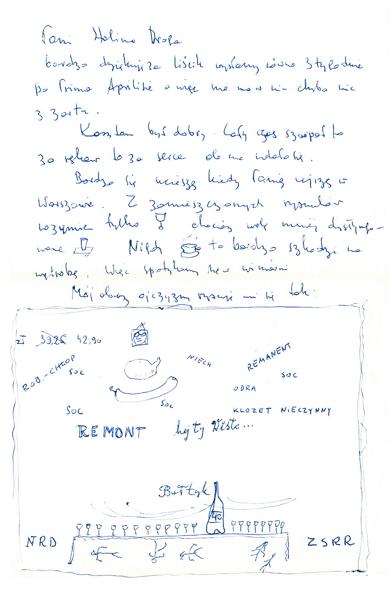 Pani Halino Droga
bardzo dziękuję za liścik wysłany równo 3 tygodnie
po Prima Aprilis a więc nie ma w nim chyba nic
z żartu.
Kasztan był dobry. Cały czas szarpał to
za rękaw to za serce ale nie udało się.
Bardzo się ucieszę kiedy Panią ujrzę w
Warszawie. Z zamieszczonych rysunków
tylko chociaż wolę mniej dystyngo-
wane Nigdy to bardzo szkodzi na
wątrobę. Więc spotkamy się w
Mój obraz ojczyzny rysuje mi się tak:
zł 39,26 42.90
ROB.-CHŁOP
SOC
NIECH
REMANENT
SOC
ODRA
SOC
SOC
KLOZET NIECZYNNY
REMONT byty Wisło...
Bałtyk
40
NRD
ZSRR